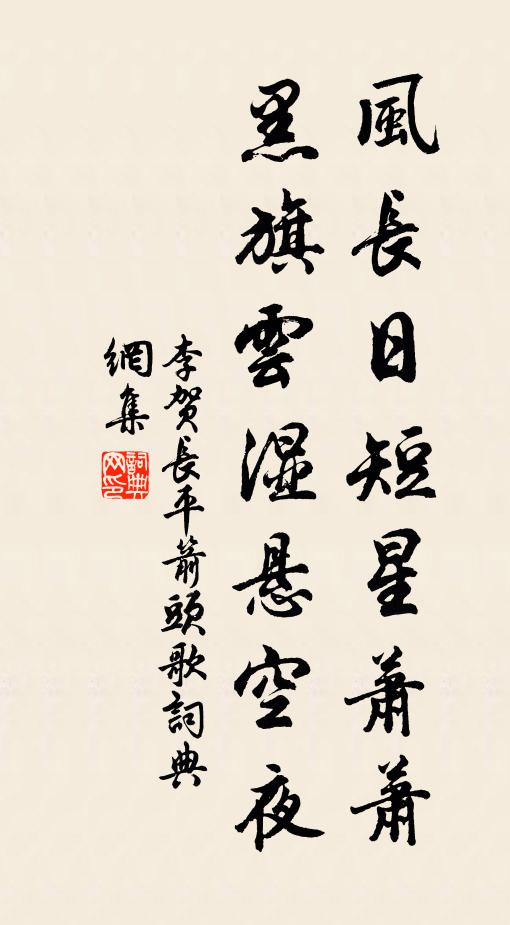 風長日短星蕭蕭
黑旗雲湿悬空夜
李贺長平箭頭歌詞典
網集
詞典网印